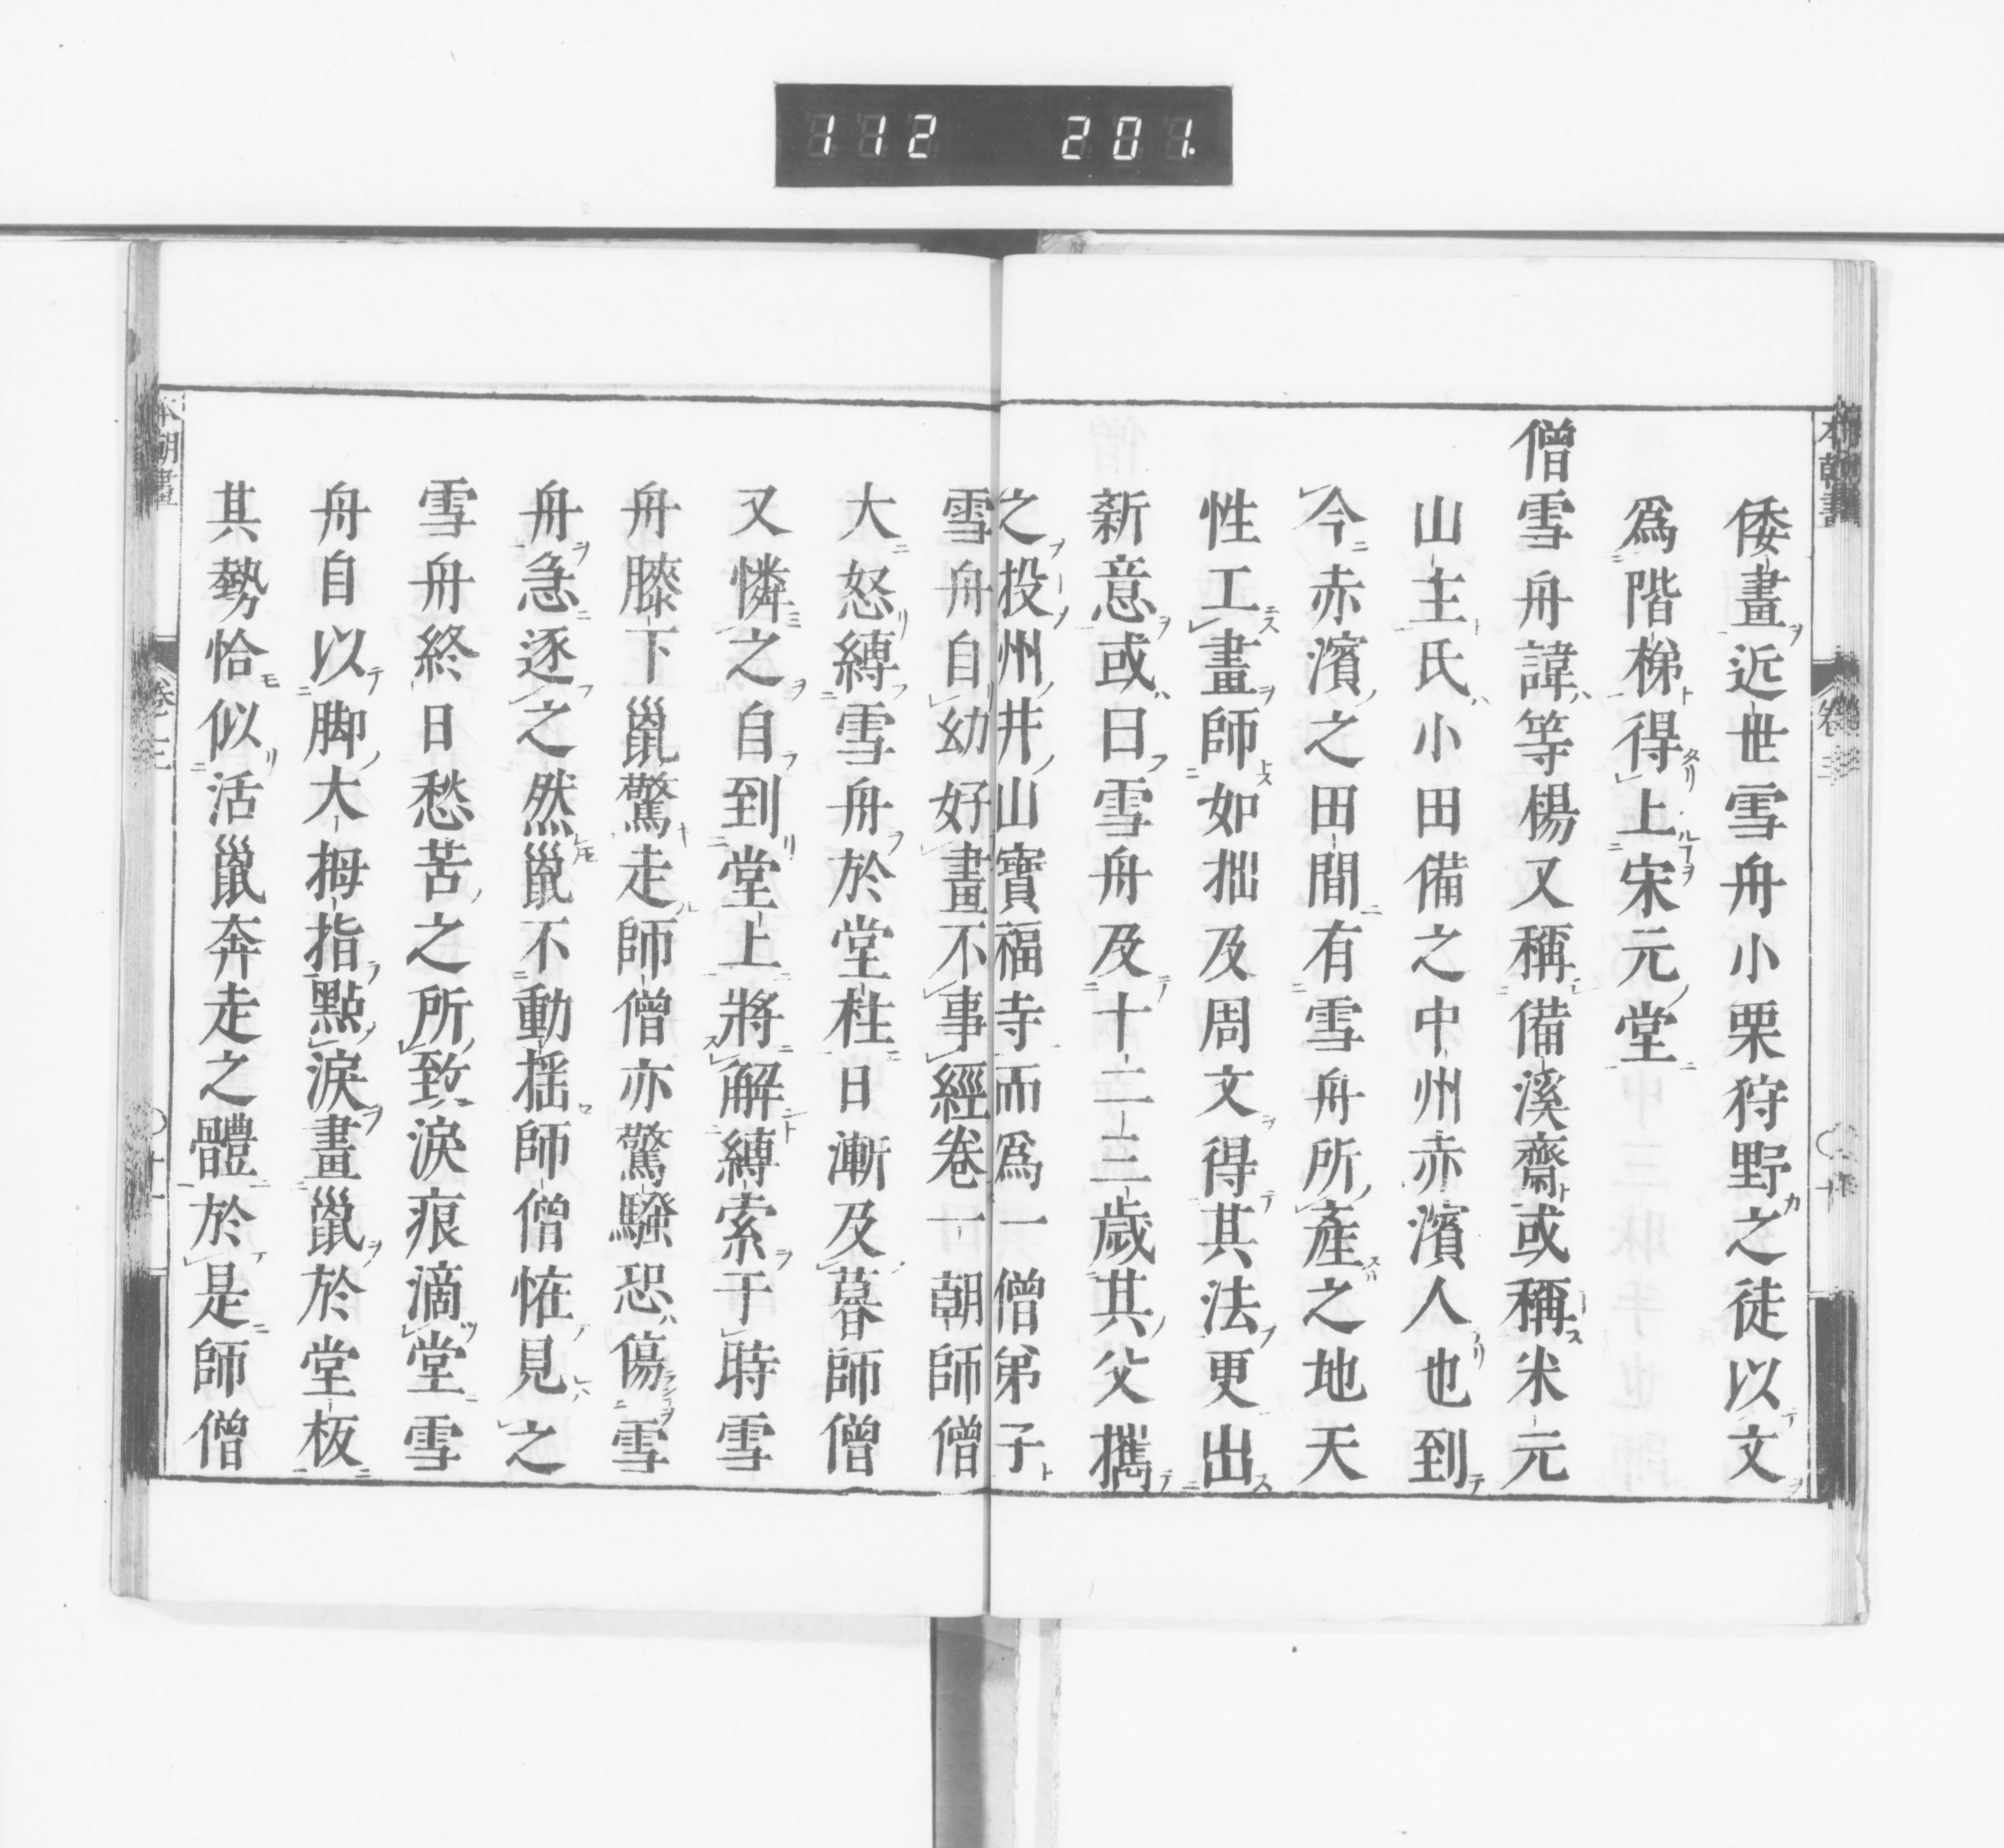 112 201
倭畫近世雪舟小栗狩野之徒以文
爲階梯得上宋元堂
僧雪舟諱等楊又稱備溪齋或稱米元
山主氏小田備之中州赤濱人也到
今赤濱之田間有雪舟所產之地天
性工畫師如拙及周文得其法更出
新意或曰雪舟及十二三歲其父攜
之投州井山寶福寺而爲一僧弟子
雪舟自幼好畫不事經卷一朝師僧
大怒縛雪舟於堂柱日漸及暮師僧
又憐之自到堂上將解縛索于時雪
舟膝下鼠驚走師僧亦驚騷恐傷雪
舟急逐之然鼠不動搖師僧恠見之
雪舟終日愁苦之所致淚痕滴堂雪
舟自以脚大拇指點淚畫鼠於堂板
其勢恰似活鼠奔走之體於是師僧
本朝畫
卷三